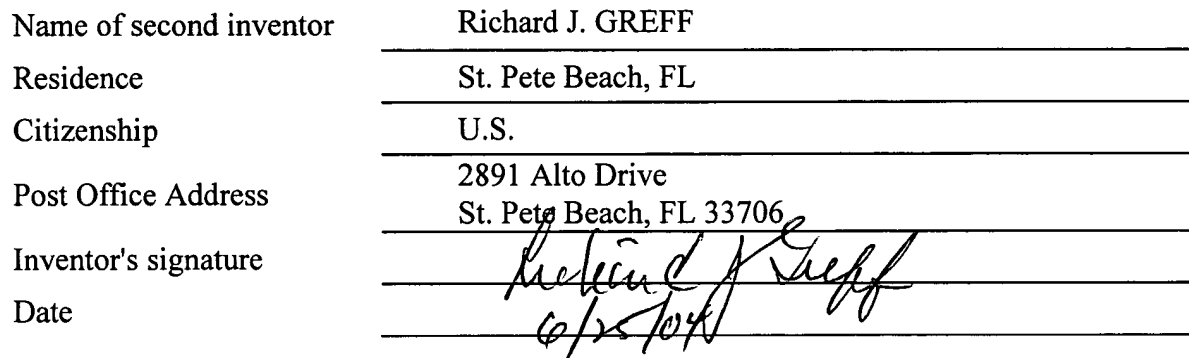 Name of second inventor Richard J. GREFF
Residence St. Pete Beach, FL
Citizenship U.S.
Post Office Address 2891 Alto Drive
St. Pete Beach, FL 33706
Inventor's signature Richard J Greff
Date 6/25/04